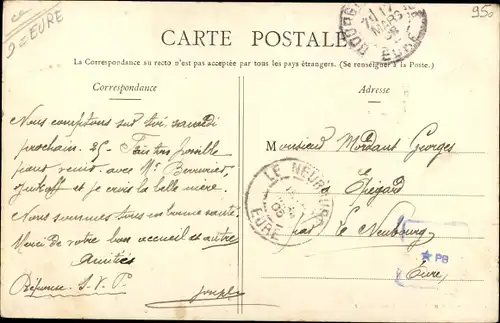 D = EURE
950
MARS
EURE
CARTE POSTALE
La Correspondance au recto n'est pas acceptée par tous les pays étrangers. (Se renseigner à la Poste.)
Correspondance
Adresse
Nous comptons sur toi, samedi
prochain. 25- Fais ton possible
pour venir avec Mr
et je crois la belle mère.
Nous sommes tous en bonne santé.
Merci de votre bon accueil et autre
Amitiés
Réponse. S.V.P.
Joseph
Monsieur Mordant Georges
Epégad
par Le Neubourg
Eure,
LE NEUBOURG
EURE
PB